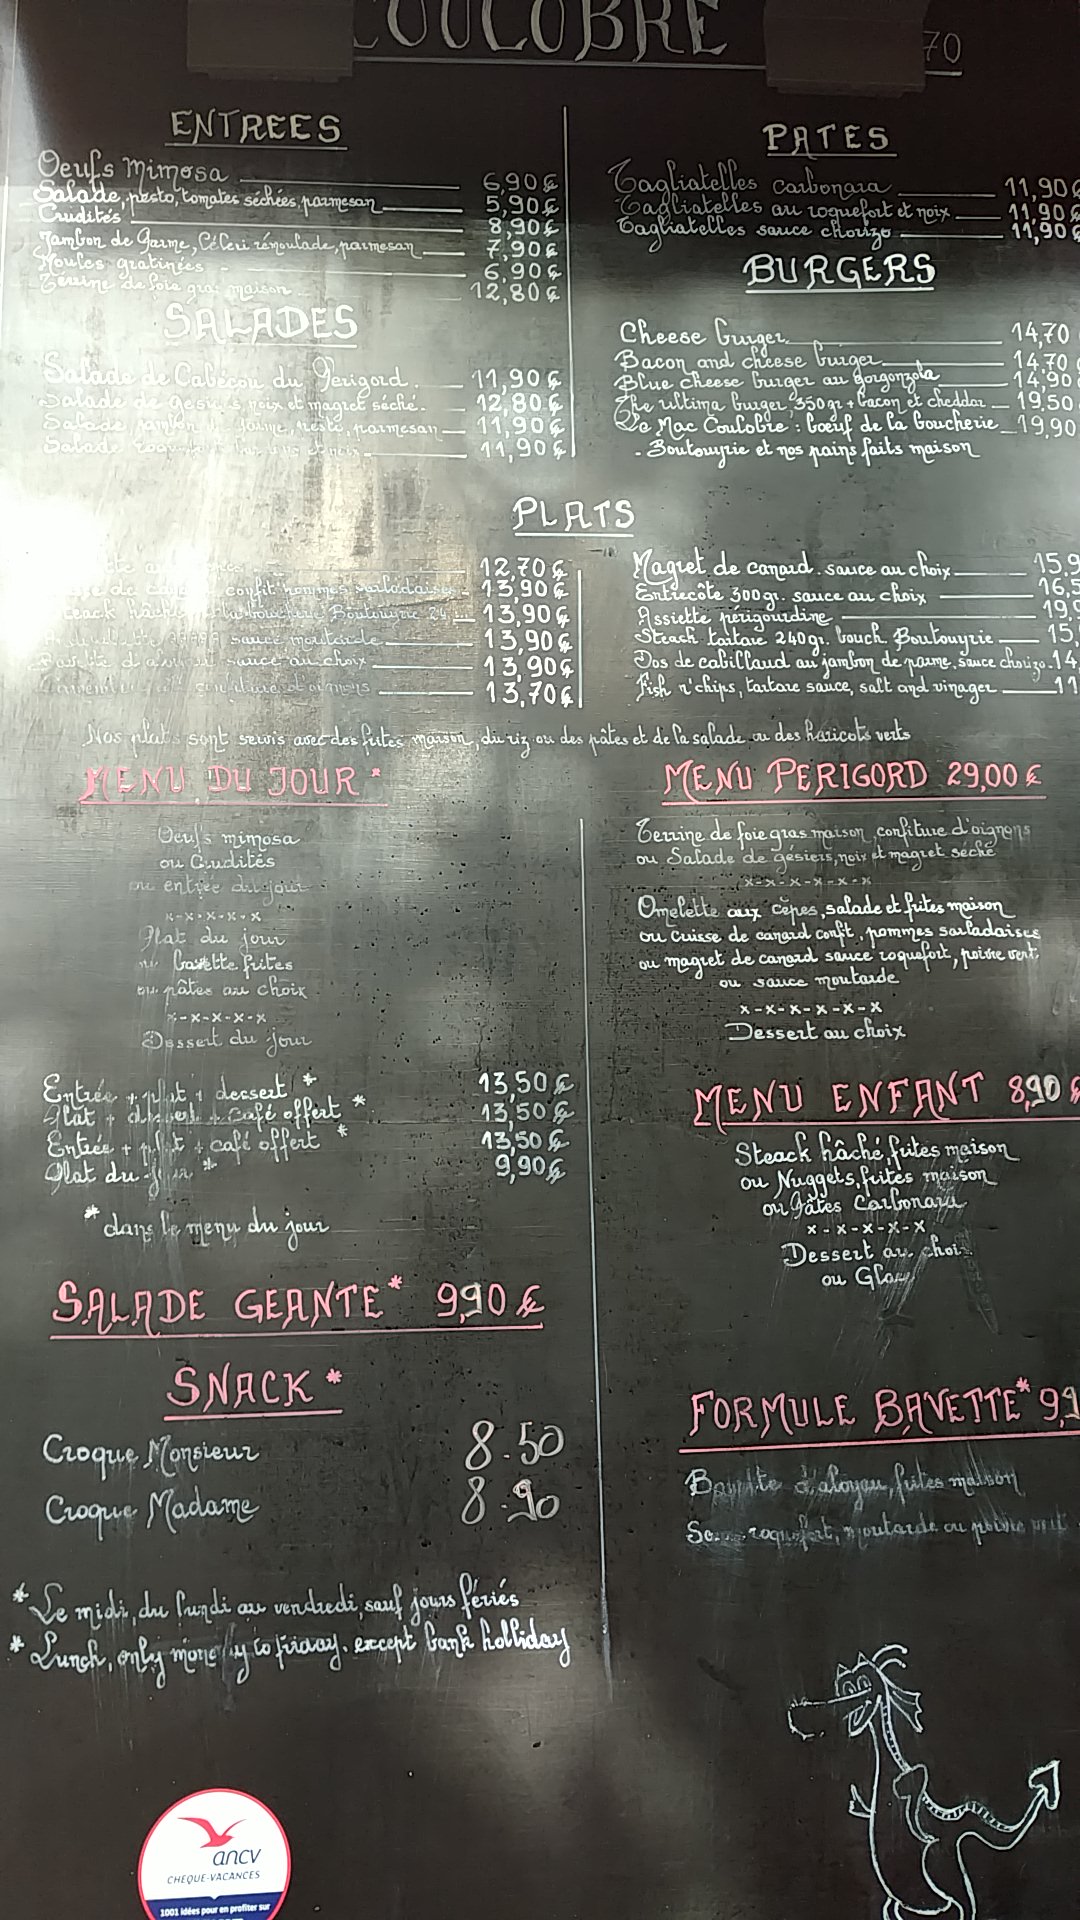 COULOBRE
70
ENTREES
Oeufs Mimosa 6,90€
Salade, pesto, tomates séchées, parmesan 5,90€
Crudités 8,90€
Jambon de Parme, Céleri rémoulade, parmesan 7,90€
Moules gratinées 6,90€
Terrine de foie gras maison 12,80€
SALADES
Salade de Cabécou du Périgord 11,90€
Salade de gésiers noix et magret séché. 12,80€
Salade jambon de parme, pesto, parmesan 11,90€
Salade et noix 11,90€
PATES
Tagliatelles carbonara 11,90€
Tagliatelles au roquefort et noix 11,90€
Tagliatelles sauce chorizo 11,90€
BURGERS
Cheese burger 14,70
Bacon and cheese burger 14,70
Blue cheese burger au gorgonzola 14,90
The ultima burger, 350gr + bacon et cheddar 19.50
Le Mac Coulobre : boeuf de la boucherie 19,90
- Boutouyrie et nos pains faits maison
PLATS
12,70€
confit pommes sarladaises 13,90€
Steack hâché boucherie Boutouyrie 13,90€
sauce moutarde 13,90€
sauce au choix 13,90€
confiture d'oignons 13,70€
Magret de canard. sauce au choix 15,9
Entrecôte 300gr. sauce au choix 16,5
Assiette périgourdine 19,9
Steack tartare 240gr, bouch. Boutouyrie 15,
Dos de cabillaud au jambon de parme, sauce chorizo. 14,
Fish n'chips, tartare sauce, salt and vinager 11
Nos plats sont servis avec des frites maison, du riz ou des pâtes et de la salade ou des haricots verts
MENU DU JOUR *
Oeufs mimosa
ou Crudités
ou entrée du jour
x-x-x-x-x
Plat du jour
ou bavette frites
ou pâtes au choix
x-x-x-x-x
Dessert du jour
Entrée + plat + dessert * 13,50€
Plat + dessert + café offert * 13,50€
Entrée + plat + café offert * 13,50€
Plat du jour * 9,90€
* dans le menu du jour
MENU PERIGORD 29,00€
Terrine de foie gras maison, confiture d'oignons
ou Salade de gésiers, noix et magret séché
x-x-x-x-x-x
Omelette aux cèpes, salade et frites maison
ou cuisse de canard confit, pommes sarladaises
ou magret de canard sauce roquefort, poivre vert,
ou sauce moutarde
x-x-x-x-x-x
Dessert au choix
MENU ENFANT 8,90€
Steack hâché, frites maison
ou Nuggets, frites maison
ou Pâtes Carbonara
x-x-x-x-x
Dessert au choi
ou Glac
SALADE GEANTE* 9,90€
SNACK *
Croque Monsieur 8.50
Croque Madame 8.90
FORMULE BAVETTE* 9,9
Bavette d'aloyau, frites maison
Sauce roquefort, moutarde ou poivre vert
* Le midi, du lundi au vendredi, sauf jours fériés
* Lunch, only monday to friday. except bank holliday
ancv
CHEQUE-VACANCES
1001 idées pour en profiter sur